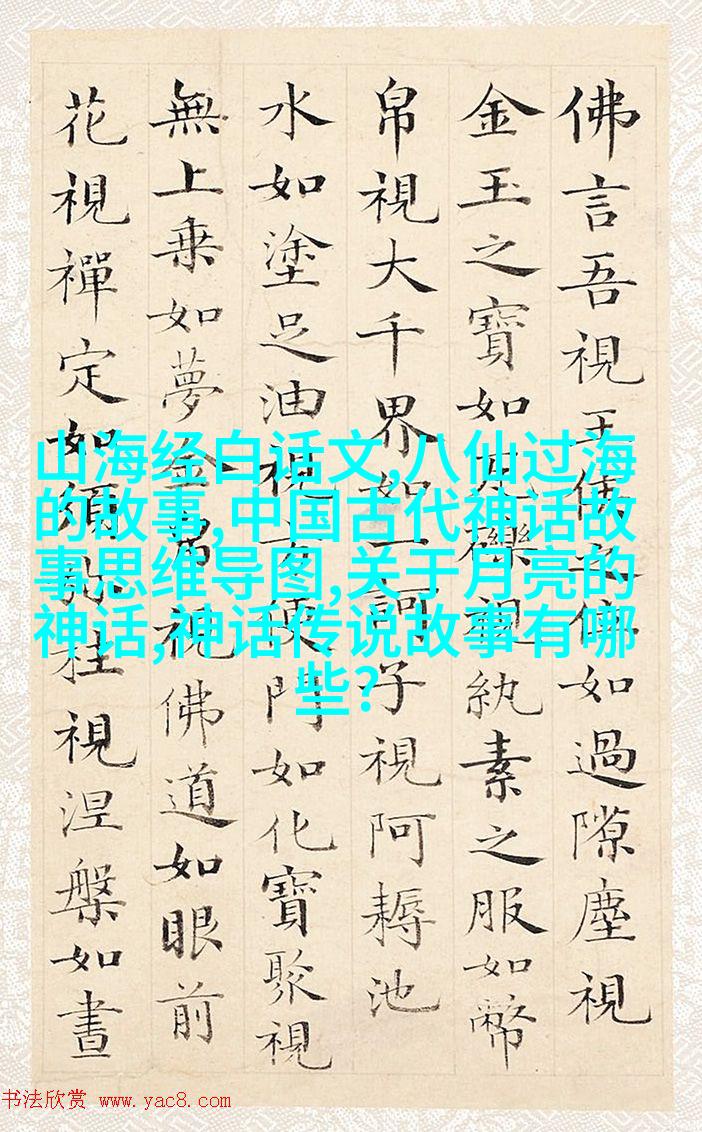 佛言吾視王侯之位如過隙塵視
金玉之寶如瓦礫視紈素之服如幣
帛視大千界如一訶子視阿耨池
水如塗足油視方便門如化寶聚視
無上乗如夢金帛視佛道如眼前
花視禪定如須弥柱視涅槃如晝
山海经白话文,八仙过海
的故事,中国古代神话故
事思维导图,关于月亮的
神话,神话传说故事有哪
些?
书法欣赏 www.yac8.com